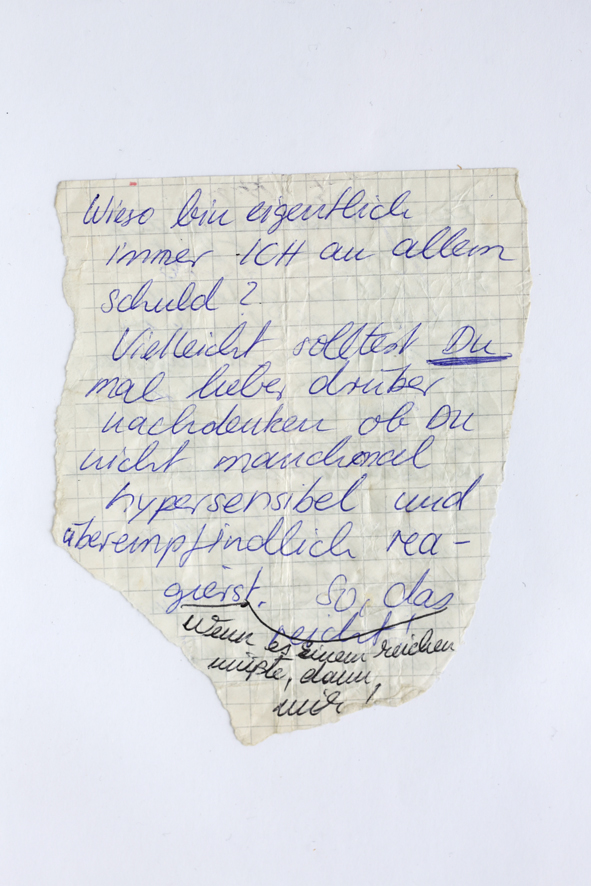 Wieso bin eigentlich
immer ICH an allem
schuld?
Vielleicht solltest Du
mal lieber drüber
nachdenken ob Du
nicht manchmal
hypersensibel und
überempfindlich rea-
gierst. So, das
reicht!
Wenn es einem reichen
müßte, dann
mir!